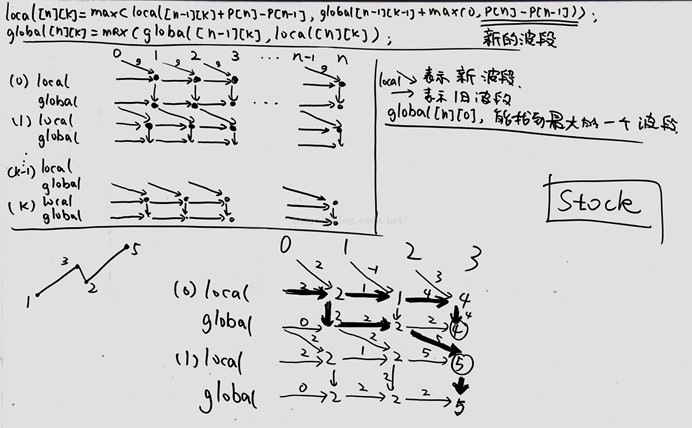 local[n][k]=max(local[n-1][k]+P[n]-P[n-1], global[n-1][k-1]+max(0, P[n]-P[n-1]));
global[n][k]=max(global[n-1][k], local[n][k]);
新的波段
0 1 2 3 ... n-1 n
g g g g
(0) local
global
(1) local
global
(k-1) local
global
(k) local
global
local ↘ 表示新波段.
→ 表示旧波段
global[n][0], 能找到最大的一个波段.
Stock
1 3 2 5
0 1 2 3
2 -1 3
(0) local 2 2 1 1 4 4
4
global 0 2 2 2 2 4
2 2 5
(1) local 2 2 1 2 5 5
2
global 0 2 2 2 2 5